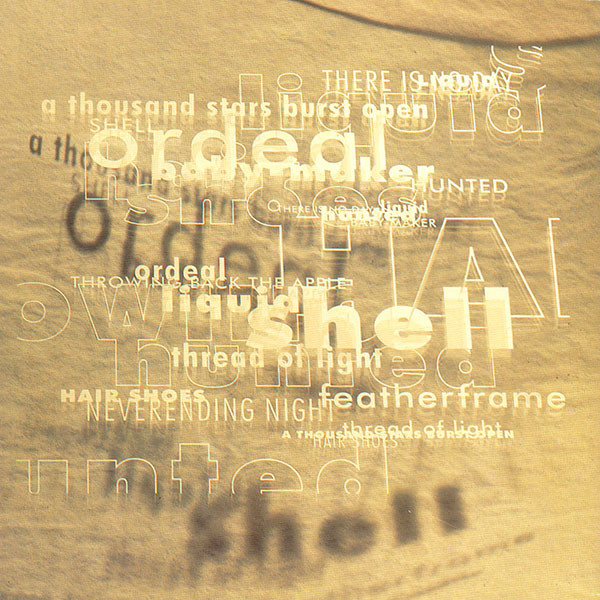 liquid
THERE IS NO DAY
LIQUID
a thousand stars burst open
SHELL
ordeal
a thousand stars
baby-maker
HUNTED
hair shoes
THERE IS NO DAY
liquid
hunted
BABY-MAKER
ordeal
HA
ordeal
THROWING BACK THE APPLE
liquid
shell
hunted
thread of light
HAIR SHOES
featherframe
NEVERENDING NIGHT
thread of light
A THOUSAND STARS BURST OPEN
HAIR SHOES
unted
shell